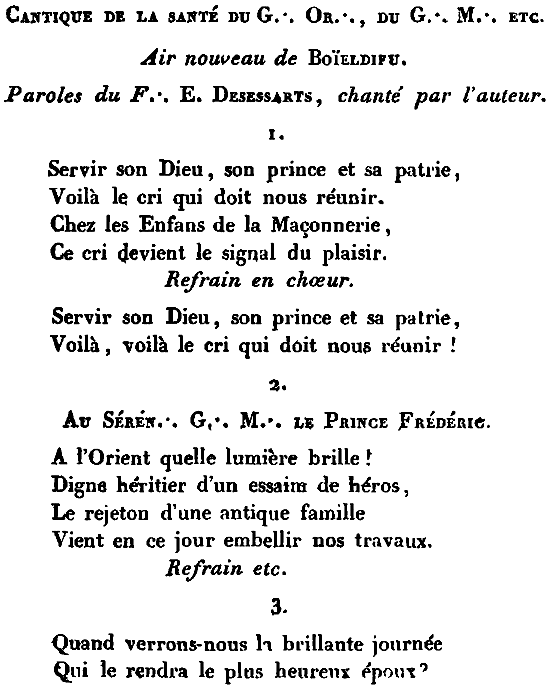 CANTIQUE DE LA SANTÉ DU G.·. OR.·., DU G.·. M.·. ETC.
Air nouveau de BOÏELDIEU.
Paroles du F.·. E. DESESSARTS, chanté par l'auteur.
1.
Servir son Dieu, son prince et sa patrie,
Voilà le cri qui doit nous réunir.
Chez les Enfans de la Maçonnerie,
Ce cri devient le signal du plaisir.
Refrain en chœur.
Servir son Dieu, son prince et sa patrie,
Voilà, voilà le cri qui doit nous réunir !
2.
AU SÉRÉN.·. G.·. M.·. LE PRINCE FRÉDÉRIC.
A l'Orient quelle lumière brille !
Digne héritier d'un essaim de héros,
Le rejeton d'une antique famille
Vient en ce jour embellir nos travaux.
Refrain etc.
3.
Quand verrons-nous la brillante journée
Qui le rendra le plus heureux époux?